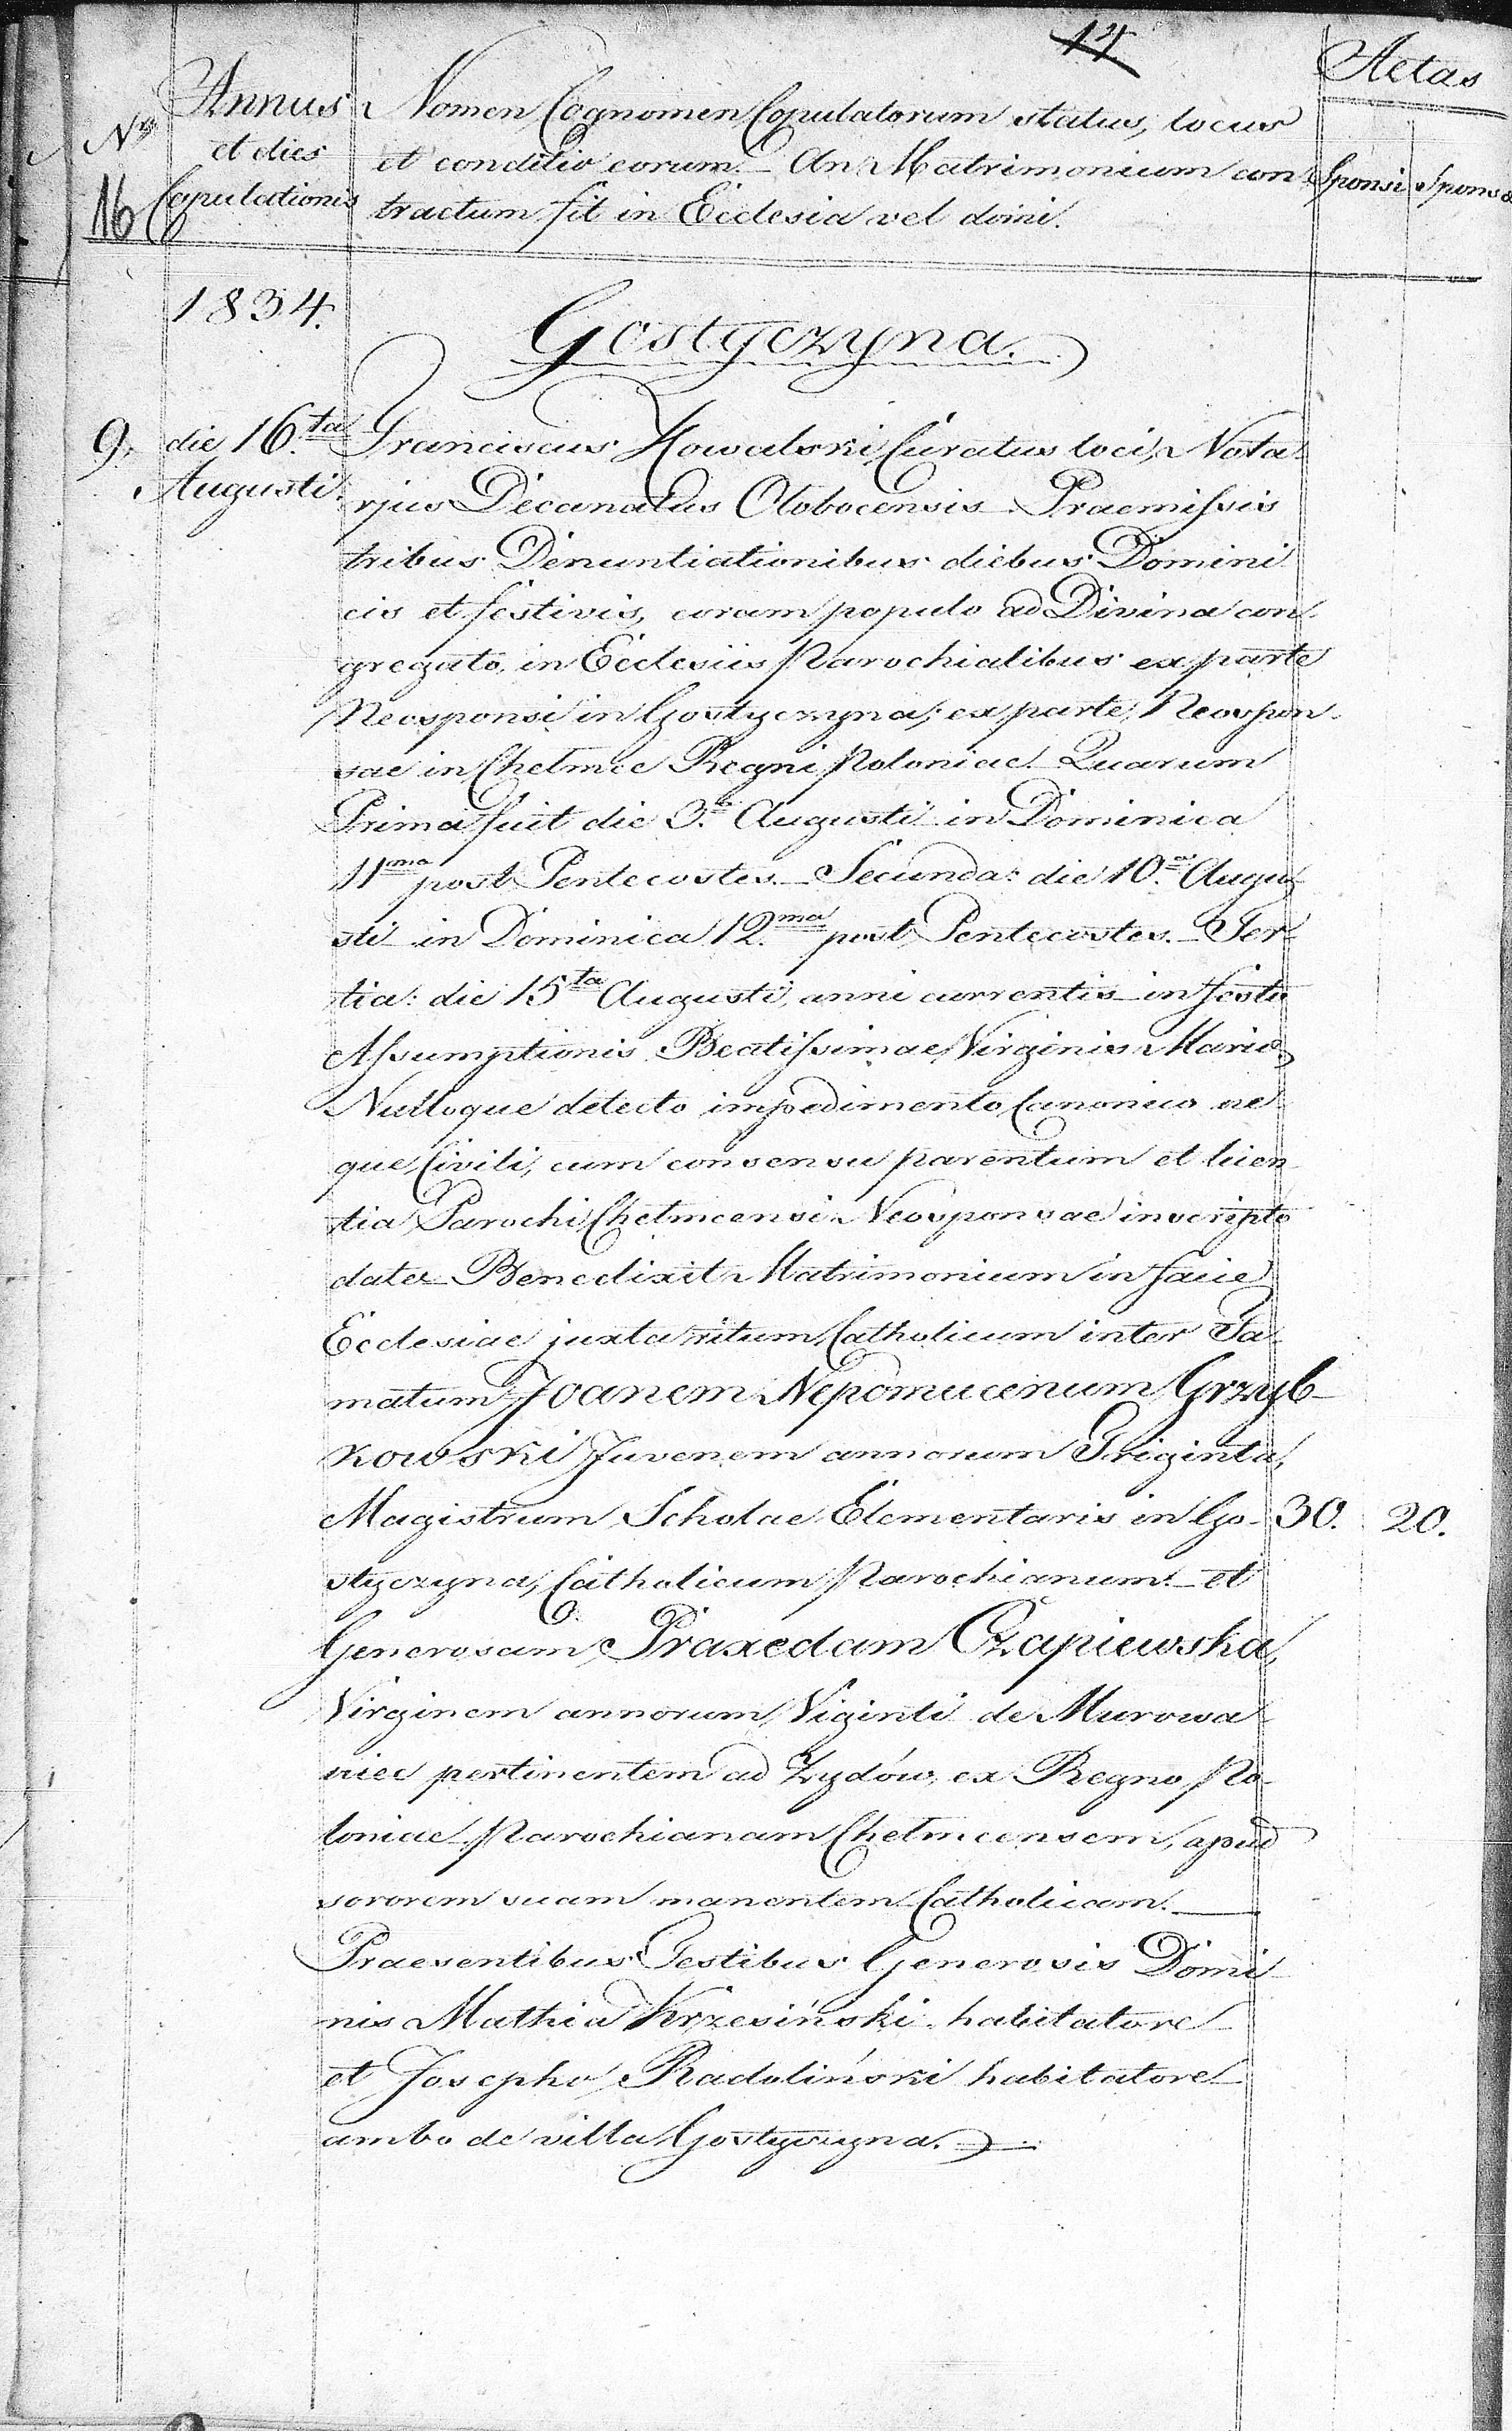 14
Aetas
Nr Annus Nomen Cognomen Copulatorum status, locus
et dies et conditio eorum. An Matrimonium con Sponsi Sponsa
16 Copulationis tractum fit in Ecclesia vel domi.
1834.
Gostyczyna.
9, die 16.ta Franciscus Kowalski Curatus loci, Nota-
Augusti. rjus Decanatus Olobocensis. Praemissis
tribus Denuntiationibus diebus Domini
cis et festivis, coram populo ad Divina con-
gregato, in Ecclesiis Parochialibus ex parte
Neosponsi in Gostyczyna, ex parte Neospon-
sae in Chełmce Regni Poloniae. Quarum
Prima fuit die 3.a Augusti in Dominica
11ma post Pentecostes. Secunda: die 10.a Augu-
sti in Dominica 12.ma post Pentecostes. Ter-
tia: die 15ta Augusti, anni currentis in festo
Assumptionis Beatissimae Virginis Mariae
Nulloque detecto impedimento Canonico ne
que Civili, cum consensu parentum et licen
tia Parochi Chełmcensi Neosponsae inscripto
data Benedixit Matrimonium in facie
Ecclesiae juxta ritum Catholicum inter Fa-
matum Joanem Nepomucenum Grzyb-
kowski Juvenem annorum Triginta,
Magistrum Scholae Elementaris in Go- 30. 20.
styczyna, Catholicum Parochianum. et
Generosam Praxedam Czapiewska,
Virginem annorum Viginti de Murowa
niec pertinentem ad Żydów, ex Regno Po-
loniae Parochianam Chełmcensem, apud
sororem suam manentem Catholicam.
Praesentibus Testibus Generosis Domi-
nis Mathia Krzesiński habitatore
et Josepho Radoliński habitatore
ambo de villa Gostyczyna.